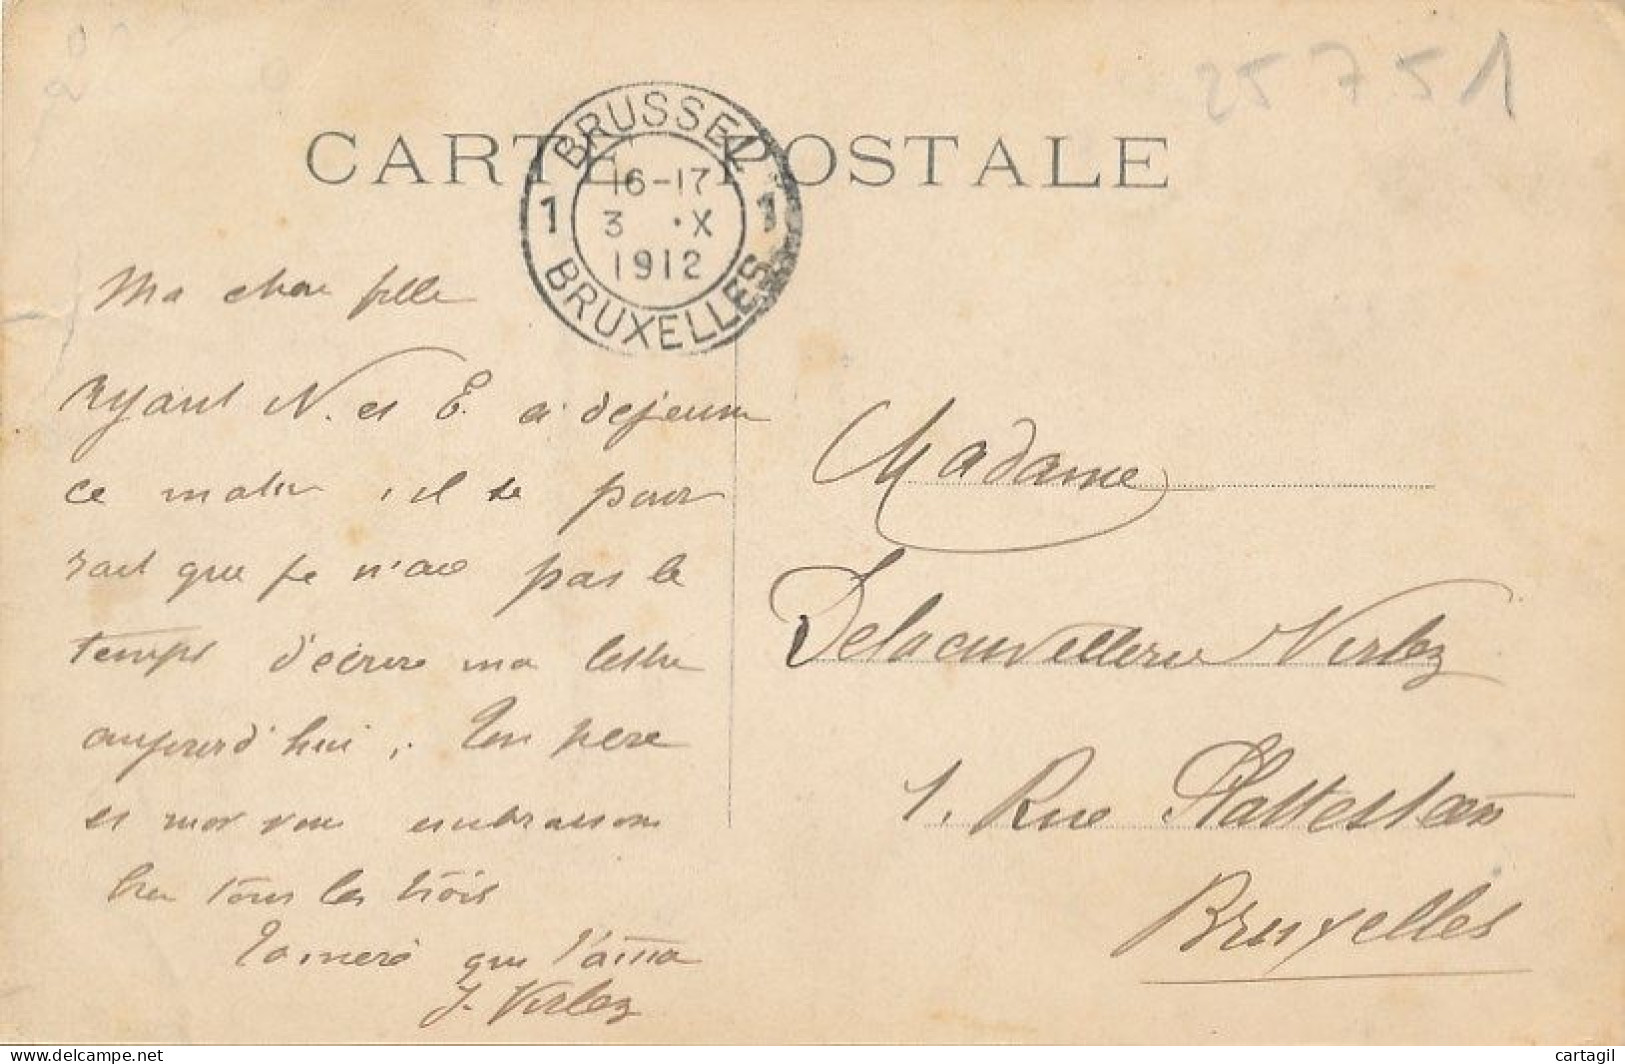 25751
CARTE POSTALE
BRUSSEL
16-17
1 3 ·X 1
1912
BRUXELLES
Ma chère fille
Ayant N. et E. a dejeuner
ce matin, il se pour
rait que je n'aie pas le
temps d'écrire ma lettre
aujourd'hui, Ton père
et moi vous embrassons
bien tous les trois
Ta mère que t'aime
J. Virlez
Madame
Delacuvellerie Virlez
1. Rue Plattesteen
Bruxelles
delcampe.net
cartagil